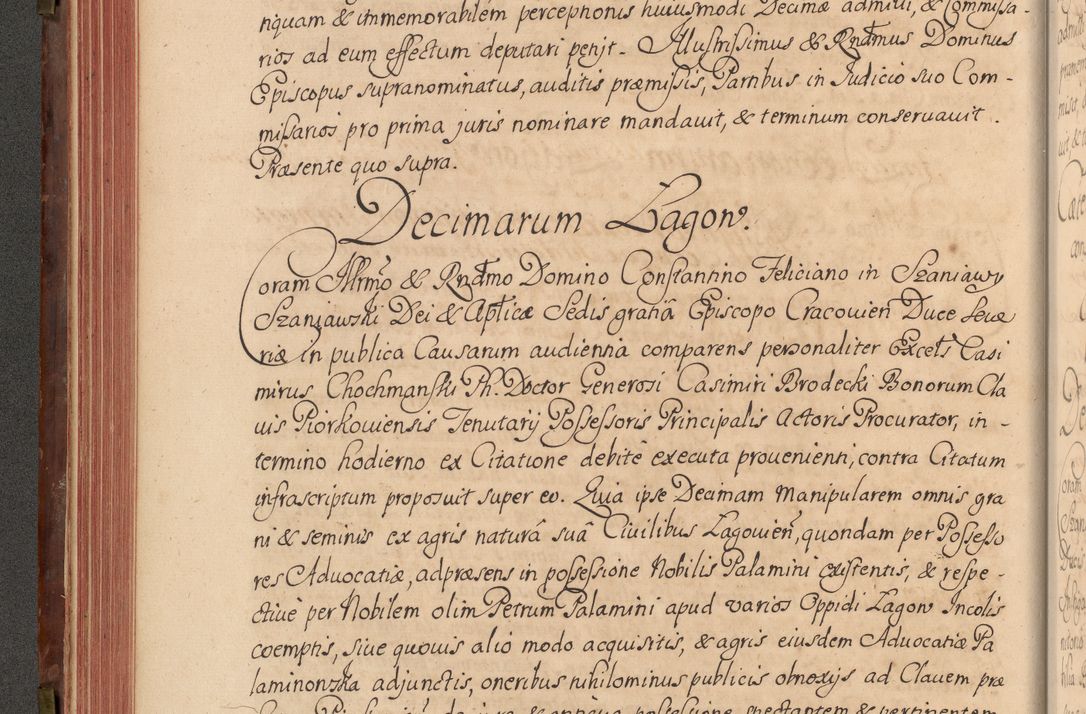 riquam & immemorabilem perceptionis huiusmodi Decimæ admitti, & Commissa-
rios ad eum effectum deputari petijt. Illustrissimus & Rndmus Dominus
Episcopus supranominatus, auditis præmissis, Partibus in Iudicio suo Com-
missarios pro prima juris nominare mandavit, & terminum conservavit.
Præsente quo supra.
Decimarum Łagow.
Coram Illrmo & Rndmo Domino Constantino Feliciano in Szaniawy
Szaniawski Dei & Aptlicæ Sedis gratiâ Episcopo Cracovien Duce Seve
riæ in publica Causarum audientia comparens personaliter Excels Casi
mirus Chochmanski Ph. Doctor Generosi Casimiri Brodecki Bonorum Cla
vis Piorkoviensis Tenutarij Possessoris Principalis Actoris Procurator, in
termino hodierno ex Citatione debite executa provenienti, contra Citatum
infrascriptum proposuit super eo. Quia ipse Decimam Manipularem omnis gra
ni & seminis ex agris naturâ suâ Civilibus Lagovien, quondam per Possesso
res Advocatiæ, adpræsens in possessione Nobilis Palamini existentis, & respe-
ctive per Nobilem olim Petrum Palamini apud varios Oppidi Łagow Incolis
coemptis, sive quovis alio modo acquisitis, & agris eiusdem Advocatiæ Pa
laminonzka adjunctis, oneribus nihilominus publicis obnoxijs ad Clavem præ
de jure & antiqua possessione spectantem & pertinentem